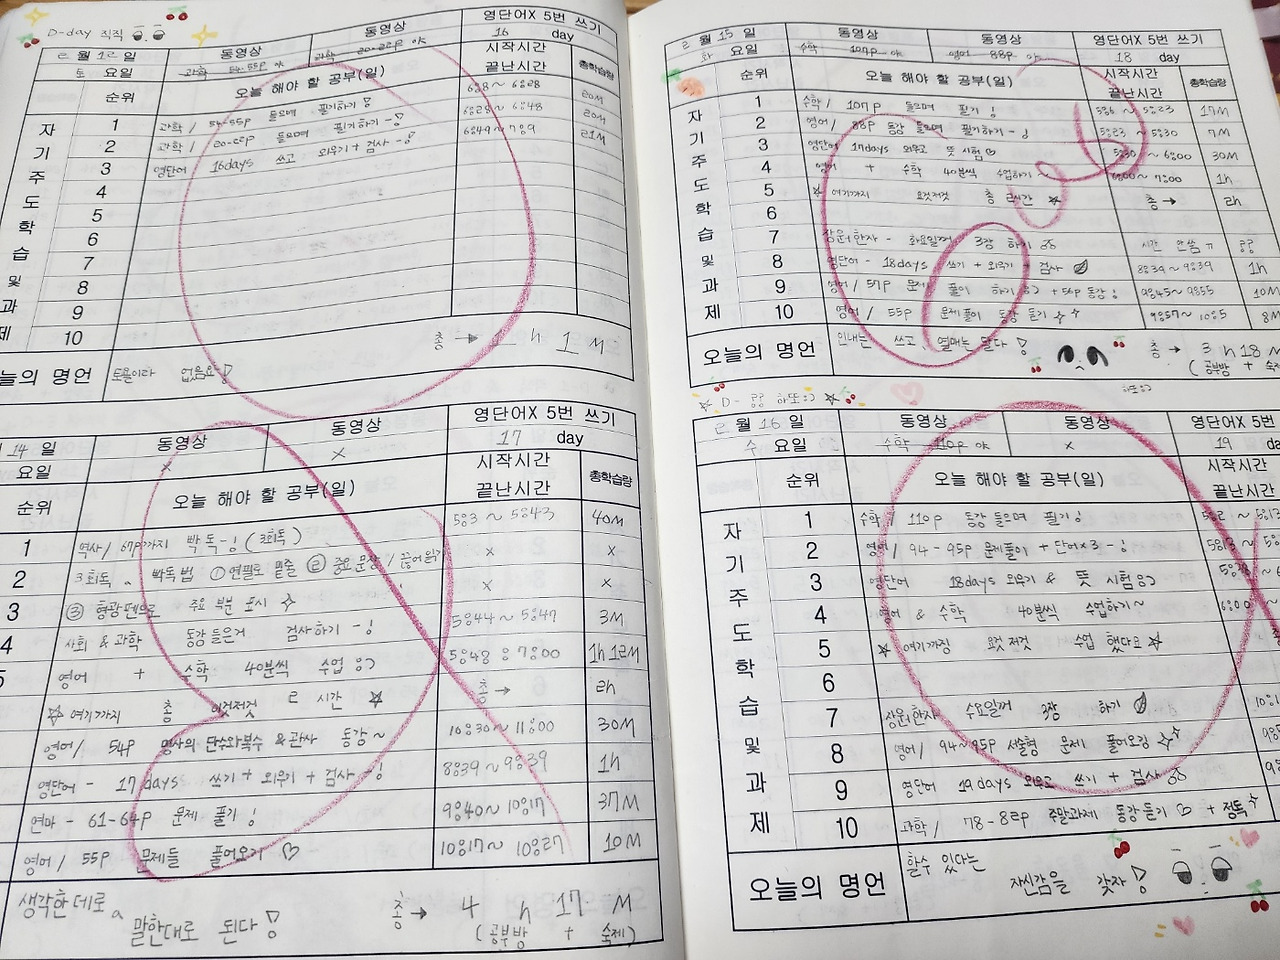 D-day 직직
2월 12일 동영상 동영상 영단어X 5번 쓰기
16 day
토 요일 과학 54-55p 야 과학 20-22p 야 시작시간 끝난시간 총학습량
순위 오늘 해야 할 공부(일)
자기주도학습 및 과제
1 과학 / 54-55p 들으며 필기하기! 6:8 ~ 6:28 20M
2 과학 / 20-22p 들으며 필기하기-! 6:28 ~ 6:48 20M
3 영단어 16days 쓰고 외우기 + 검사-! 6:49 ~ 7:9 21M
4
5
6
7
8
9
10
총 → 1 h 1 M
늘의 명언 토욜이라 없음요!
14일 동영상 동영상 영단어X 5번 쓰기
17 day
요일 x x 시작시간 끝난시간 총학습량
순위 오늘 해야 할 공부(일)
1 역사/ 67p까지 빡독-! (3회독) 5:3 ~ 5:43 40M
2 3회독 빡독법 ① 연필로 밑줄 ② 중요 문장 / 끊어읽기 x x
3 ③ 형광펜으로 주요 부분 표시 x x
4 사회 & 과학 동강 들은거 검사하기-! 5:44 ~ 5:47 3M
5 영어 + 수학 40분씩 수업 :) 5:48 ~ 7:00 1h 12M
☆ 여기까지 총 이것저것 2 시간 ☆ 총 → 2h
영어/ 54p 명사의 단수와복수 & 관사 동강~ 10:30 ~ 11:00 30M
영단어 - 17days 쓰기 + 외우기 + 검사-! 8:39 ~ 9:39 1h
연마 - 61-64p 문제 풀기! 9:40 ~ 10:17 37M
영어/ 55p 문제들 풀어오기 ♡ 10:17 ~ 10:27 10M
생각한데로
말한대로 된다! 총 → 4 h 17 M
(공부방 + 숙제)
2월 15일 동영상 동영상 영단어X 5번 쓰기
18 day
화 요일 수학 107p 야 영어 88p 야 시작시간 끝난시간 총학습량
순위 오늘 해야 할 공부(일)
자기주도학습 및 과제
1 수학/ 107p 들으며 필기! 5:6 ~ 5:23 17M
2 영어/ 88p 동강 들으며 필기하기-! 5:23 ~ 5:30 7M
3 영단어 17days 외우고 뜻 시험 5:30 ~ 6:00 30M
4 영어 + 수학 40분씩 수업하기~ 6:00 ~ 7:00 1h
5 ☆ 여기까지 요것저것 총 2시간 ☆ 총 → 2h
6
7 상원한자 - 화요일꺼 3장 하기 시간 안씀ㅠ
8 영단어 - 18days 쓰기 + 외우기 + 검사 8:39 ~ 9:39 1h
9 영어/ 57p 문제 풀이 하기 :) + 56p 동강! 9:45 ~ 9:55 10M
10 영어/ 55p 문제풀이 동강 듣기 9:57 ~ 10:5 8M
오늘의 명언 인내는 쓰고 열매는 달다! 총 → 3 h 18 M
(공부방 + 숙제
☆ D- 하또:) ☆
하또:)
2월 16일 동영상 동영상 영단어X 5번
19 day
수 요일 수학 110p 야 x 시작시간 끝난시간
순위 오늘 해야 할 공부(일)
자기주도학습 및 과제
1 수학/ 110p 동강 들으며 필기! 5:2 ~ 5:13
2 영어/ 94-95p 문제풀이 + 단어x3-! 5:13 ~
3 영단어 18days 외우기 & 뜻 시험 :)
4 영어 & 수학 40분씩 수업하기~ 6:00 ~
5 ☆ 여기까징 요것저것 수업 했다요 ☆
6
7 상원한자 수요일꺼 3장 하기
8 영어/ 94~95p 서술형 문제 풀어오깅
9 영단어 19days 외우고 쓰기 + 검사
10 과학/ 78-82p 주말과제 동강듣기 ♡ + 정독
오늘의 명언 할수 있다는
자신감을 갖자!